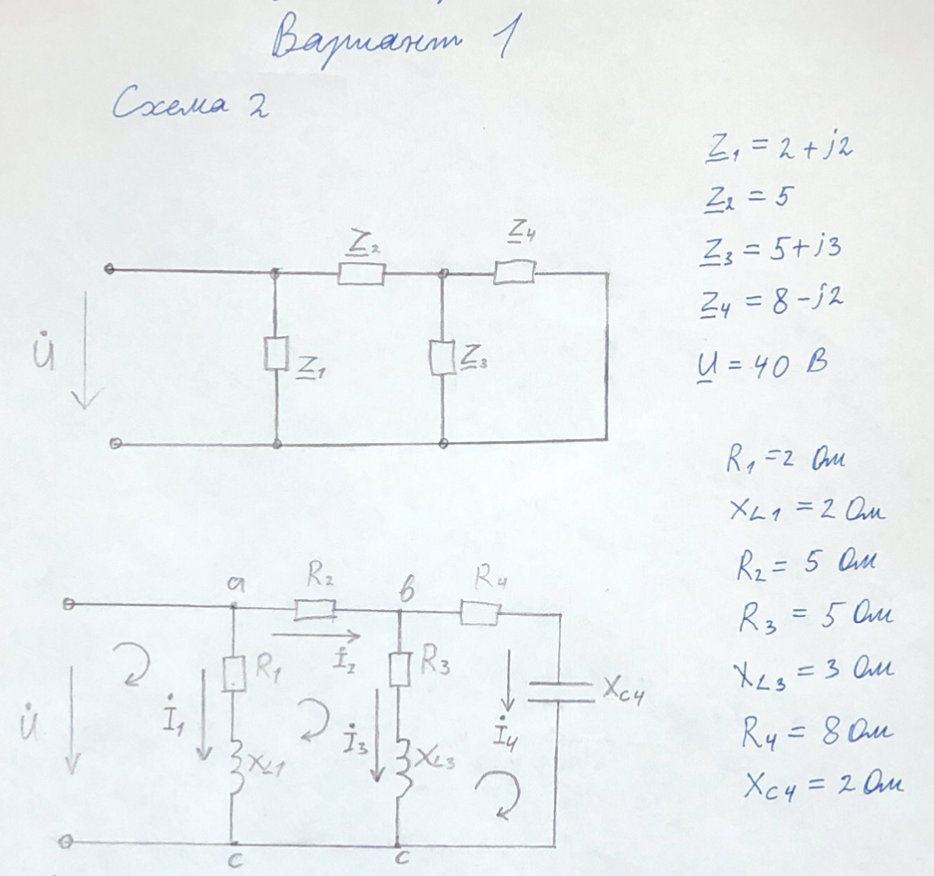 Вариант 1
Схема 2
Z1 = 2 + j2
Z2 = 5
Z3 = 5 + j3
Z4 = 8 - j2
U = 40 В
Z2
Z4
U̇
Z1
Z3
R1 = 2 Ом
XL1 = 2 Ом
R2 = 5 Ом
R3 = 5 Ом
XL3 = 3 Ом
R4 = 8 Ом
XC4 = 2 Ом
a
R2
в
R4
R1
İ2
R3
XC4
U̇
İ1
XL1
İ3
XL3
İ4
c
c